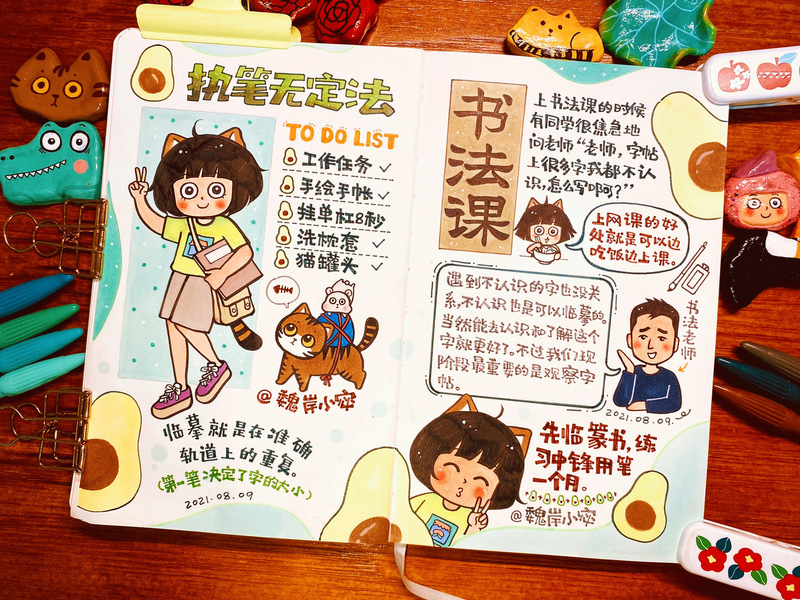 执笔无定法
TO DO LIST
工作任务 ✓
手绘手帐 ✓
挂单杠8秒
洗枕套 ✓
猫罐头 ✓
@魏岸小密
临摹就是在准确
轨道上的重复。
(第一笔决定了字的大小)
2021.08.09
书法课
上书法课的时候
有同学很焦急地
问老师“老师,字帖
上很多字我都不认
识,怎么写啊?”
上网课的好
处就是可以边
吃饭边上课。
遇到不认识的字也没关
系,不认识也是可以临摹的。
当然能去认识和了解这个
字就更好了。不过我们现
阶段最重要的是观察字
帖。
书法老师
2021.08.09.
先临篆书,练
习中锋用笔
一个月。
@魏岸小密